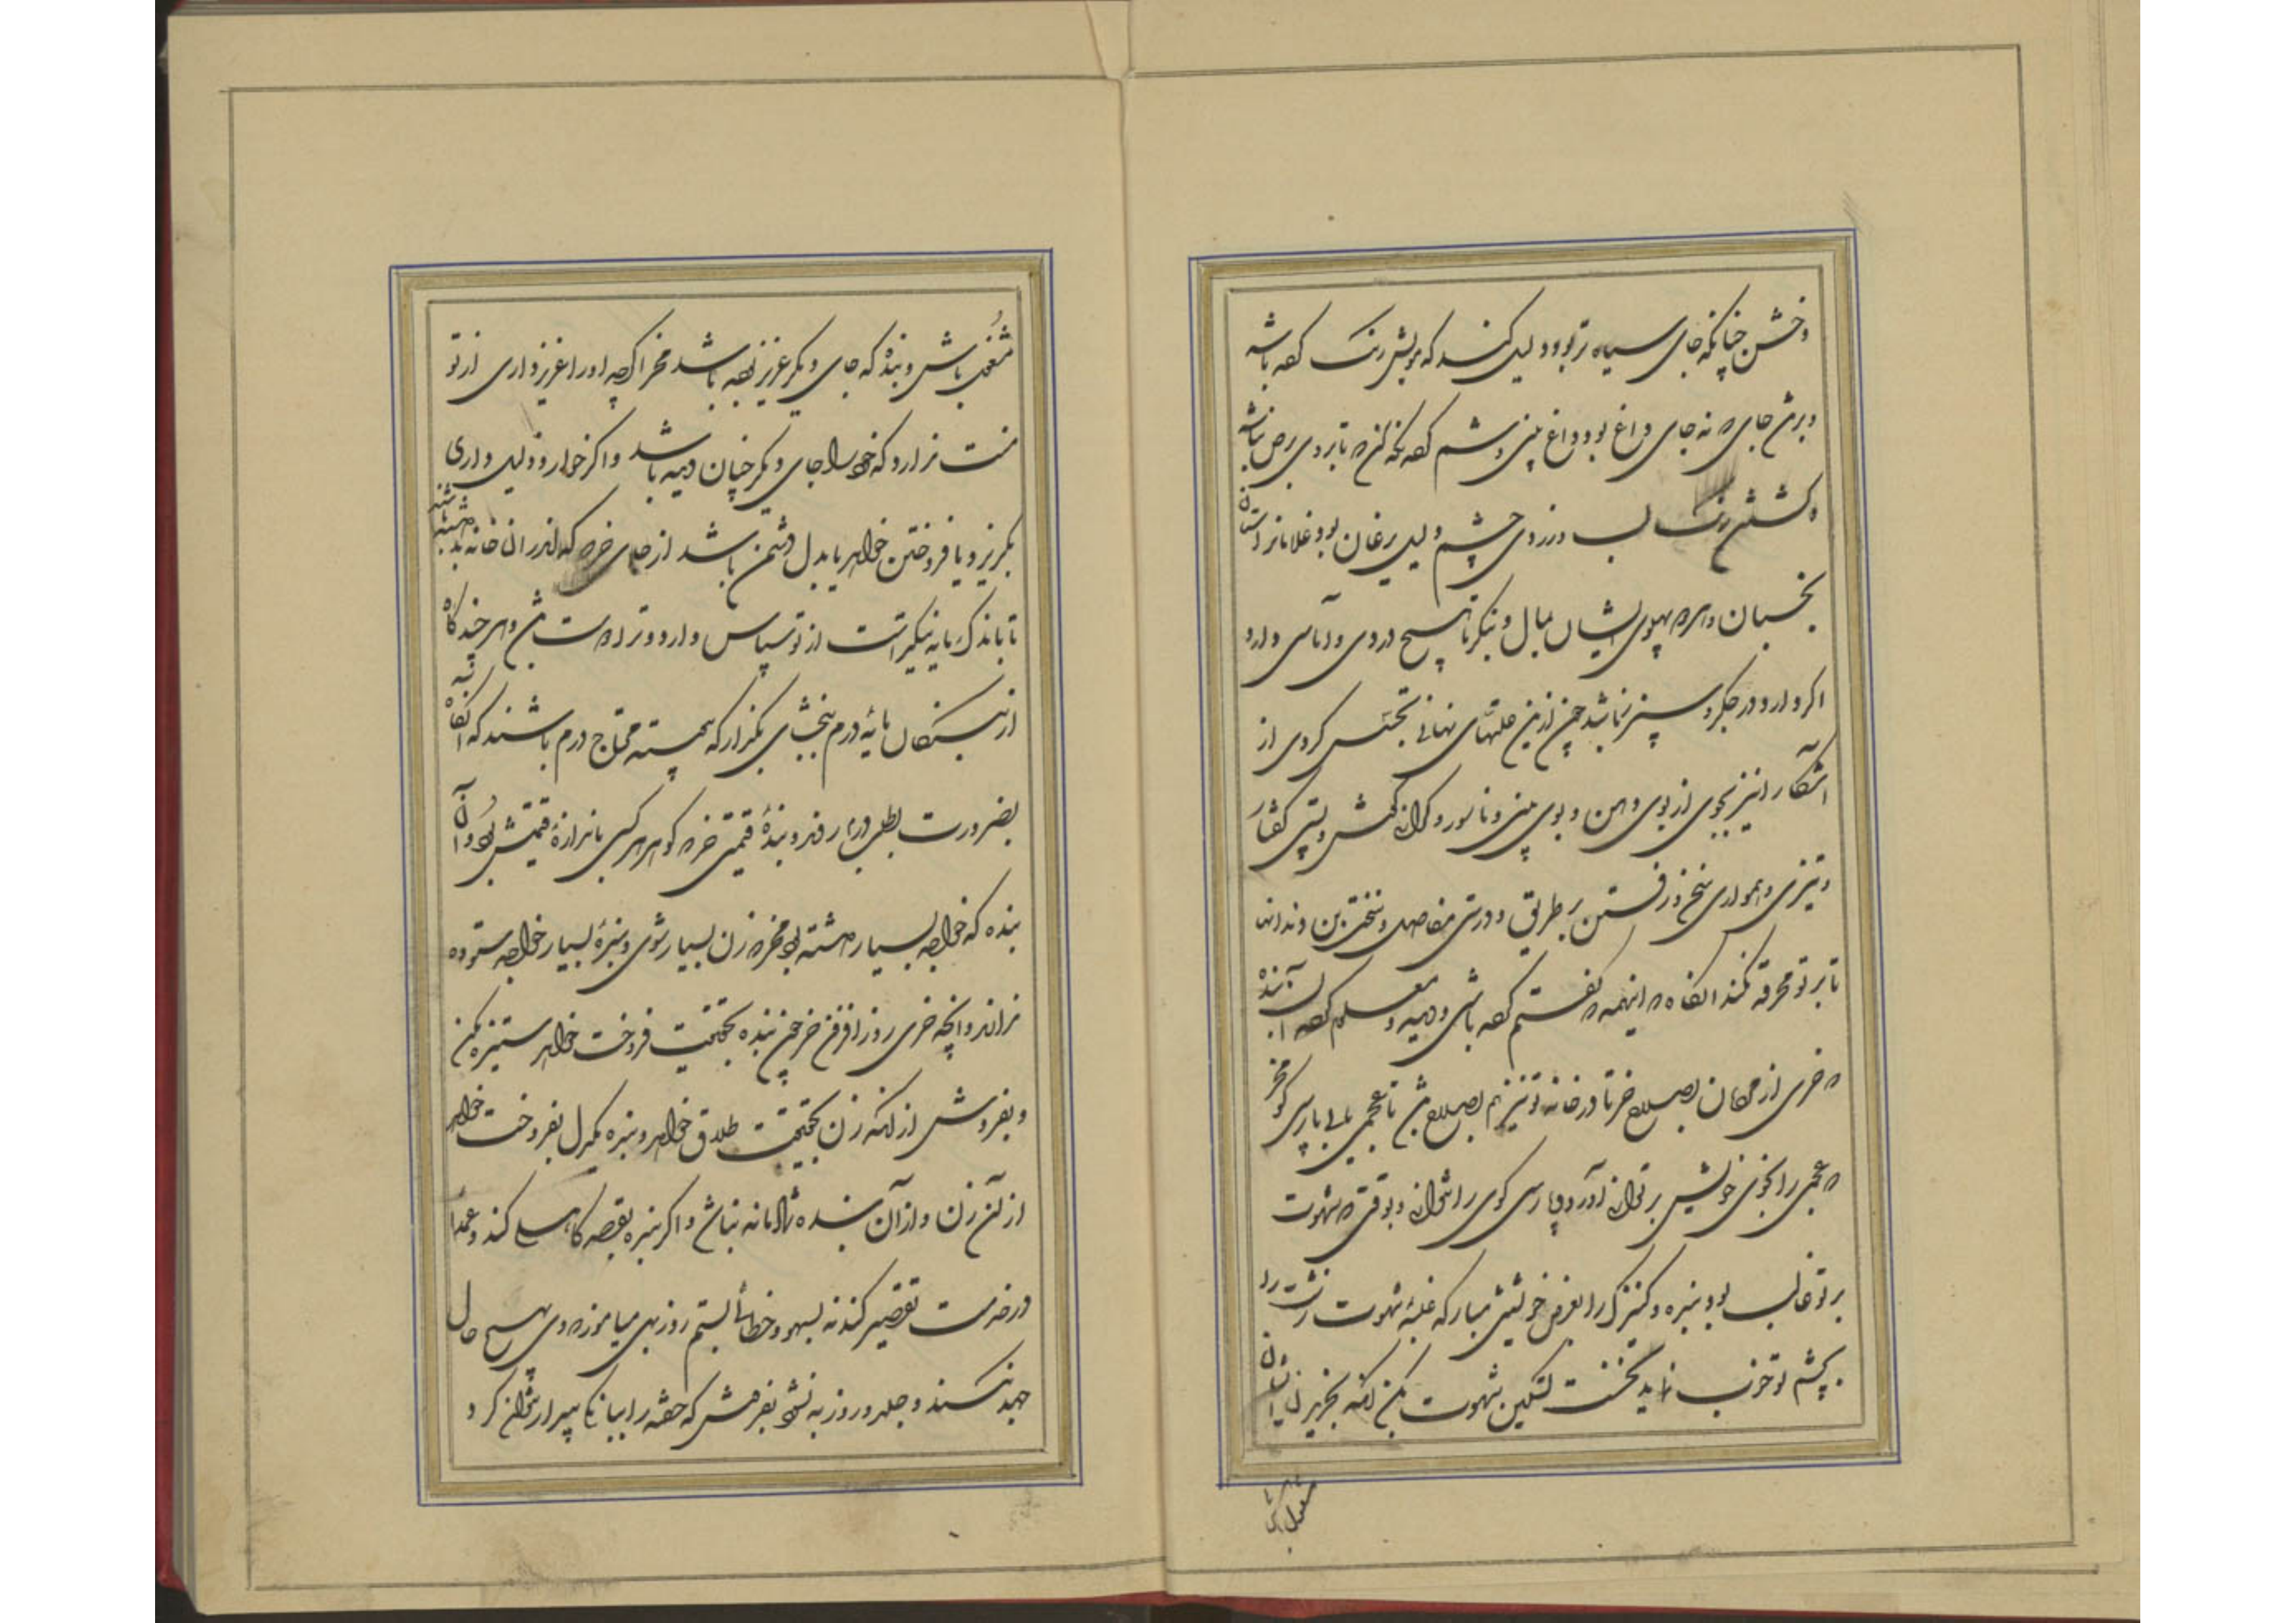 و خشن چنانکه جای سیاه تر بود دلیل کند که بویش رنک کرده باشد
و برش جای و نه جای داغ بود داغ بینی وشم کرده نکه کن تا بر وی برص نباشد
و کشتن رنک لب و زردی چشم دلیل یرغان بود و غلامان را ستان
بخسبان و هر دو پهلوی ایشان بمال و بنکر تا هیچ دردی و آماسی دارد
اکر دارد در جکر و سپرز باشد چون ازین علتهای نهانی تجسس کردی از
آشکارا نیز بجوی از بوی دهن و بوی بینی و ناسور و کرانی کوش و پستی کفتار
و تیزی و همواری سخن و رفتن بر طریق و درستی مفاصل و سختی بن دندانها
تا بر تو مخرقه نکند انکاه اینهمه که کفتم کرده باشی و دیده و معلوم کرده آن بنده
که خری از مردمان بصلاح خر تا در خانه تو نیز هم بصلاح باشد تا عجمی یابی پارسی کو مخر
که عجمی را بخوی خویش بر توان آورد و پارسی کوی را نتوان و بوقتی که شهوت
بر تو غالب بود بنده و کنیزک را بعرض خویش میار که غلبه شهوت زشت را
بچشم تو خوب نماید نخست تسکین شهوت بکن انکه بخریدن ایشان
مشغول باش
مشغول باش و بنده که جای دیکر عزیز بوده باشد مخر اکرچه او را عزیز داری از تو
منت ندارد که خود را جای دیکر چنان دیده باشد و اکر خوار و ذلیل داری
بکریزد یا فروختن خواهد یا بدل دشمن باشد از جای خر که اندر ان خانه بد داشته باشند
تا باندک مایه نیکی راست از تو سپاس دارد و ترا دوست باشد و هر چند کاه
از بندکان مایه درم ببخشای مکذار که پیوسته محتاج درم باشند که آنکاه
بضرورت بطلب درم روند و بنده قیمتی خر که کوهر هر کسی باندازه قیمتش بود و آن
بنده که خواجه بسیار داشته بود مخر که زن بسیار شوی و بنده بسیار خواجه ستوده
ندانند و آنچه خری روز افزون خر چون بنده بحقیقت فروخت خواهد ستیزه مکن
و بفروش از انکه زن بحقیقت طلاق خواهد و بنده یکدل بفروخت خواهد
از آن زن و از آن بنده شادمانه نباشی و اکر بنده بقصد کاهلی کند و عمدا
در خدمت تقصیر کند نه بسهو و خطا بستم روزبهی میاموز که وی بهیچ حال
جهد نکند و جلد و روزبه نشود بفروشش که خفته را ببانک بیدار توان کرد و